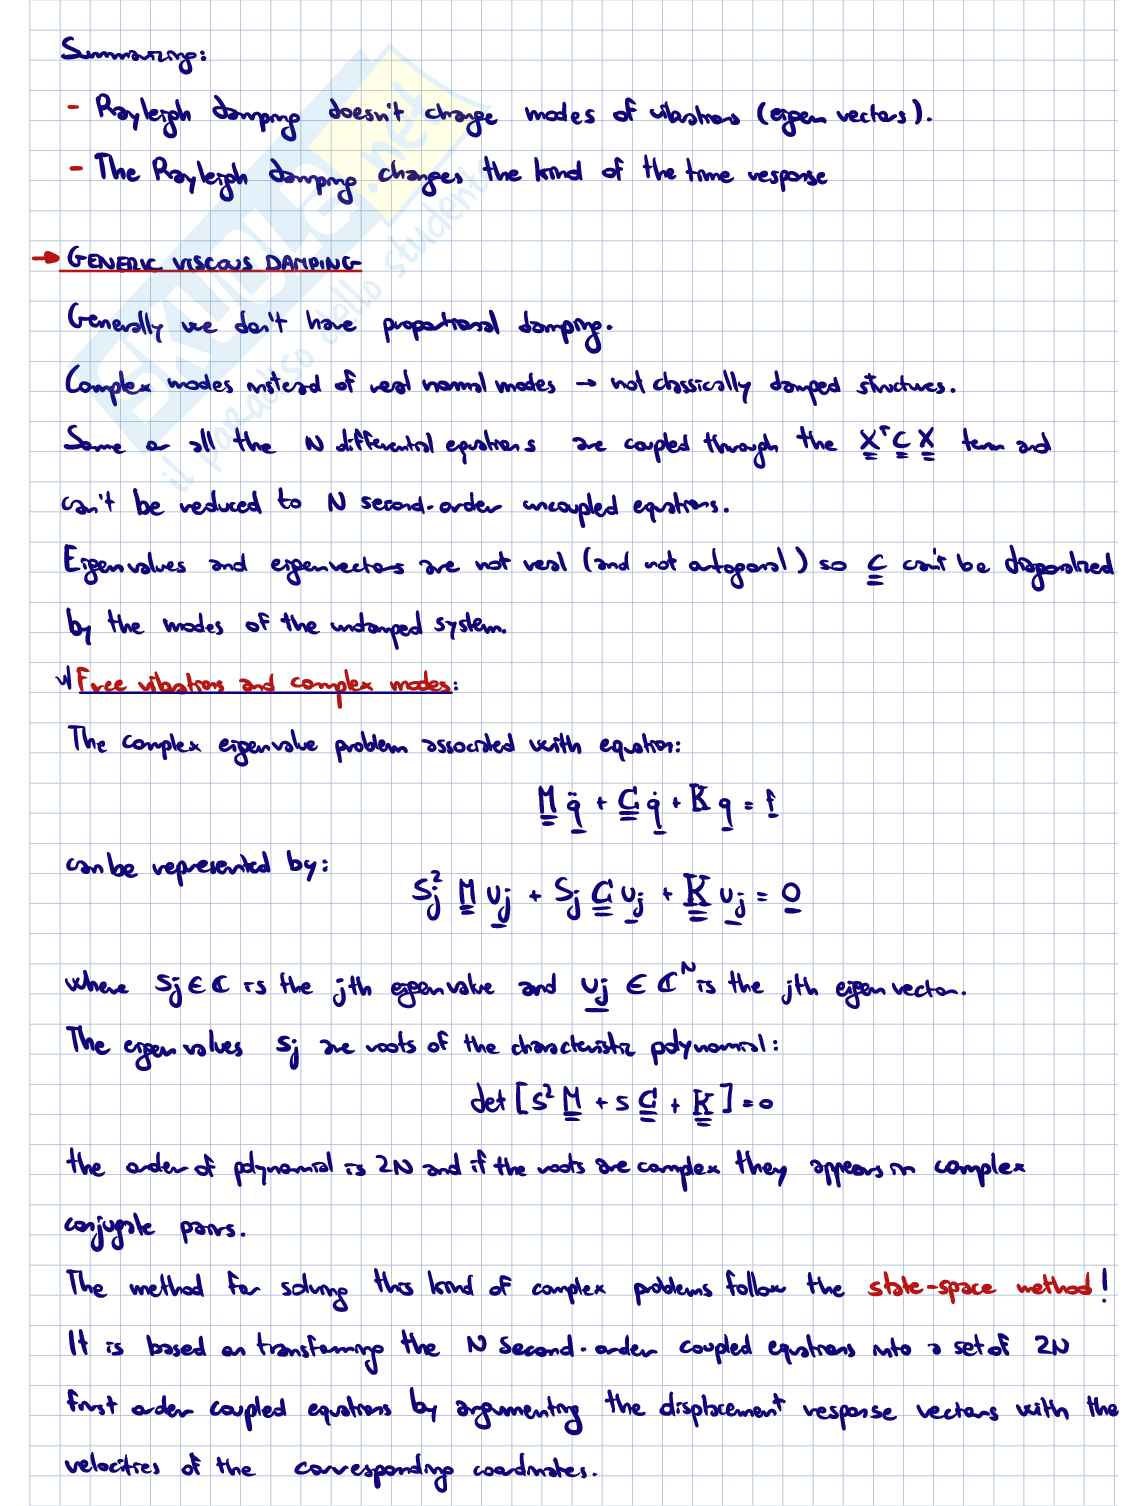 Summarizing:
- Rayleigh damping doesn't change modes of vibrations (eigen vectors).
- The Rayleigh damping changes the kind of the time response
→ GENERIC VISCOUS DAMPING
Generally we don't have proportional damping.
Complex modes instead of real normal modes → not classically damped structures.
Some or all the N differential equations are coupled through the X^T C X term and
can't be reduced to N second-order uncoupled equations.
Eigenvalues and eigenvectors are not real (and not ortogonal) so C can't be diagonalized
by the modes of the undamped system.
Free vibrations and complex modes:
The complex eigenvalue problem associated with equation:
M q̈ + C q̇ + K q = f
can be represented by:
Sj² M uj + Sj C uj + K uj = 0
where Sj ∈ ℂ is the jth eigenvalue and uj ∈ ℂ^N is the jth eigenvector.
The eigenvalues Sj are roots of the characteristic polynomial:
det [s² M + s C + K] = 0
the order of polynomial is 2N and if the roots are complex they appears in complex
conjugate pairs.
The method for solving this kind of complex problems follow the state-space method!
It is based on transforming the N second-order coupled equations into a set of 2N
first order coupled equations by argumenting the displacement response vectors with the
velocities of the corresponding coordinates.
SKUOLA.net
il paradiso dello studente